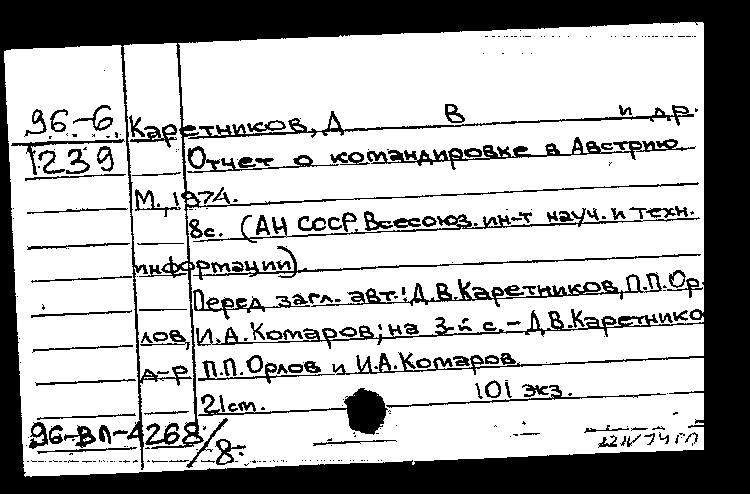 96-6 Каретников, Д В и др.
1239 Отчет о командировке в Австрию
М., 1974.
8с. (АН СССР. Всесоюз. ин-т науч. и техн.
информации).
Перед загл. авт.: Д.В.Каретников, П.П.Ор-
лов, И.А.Комаров; на 3-й с. – Д.В.Каретнико
д-р П.П.Орлов и И.А.Комаров.
21см. 101 экз.
96-ВЛ-4268/8-